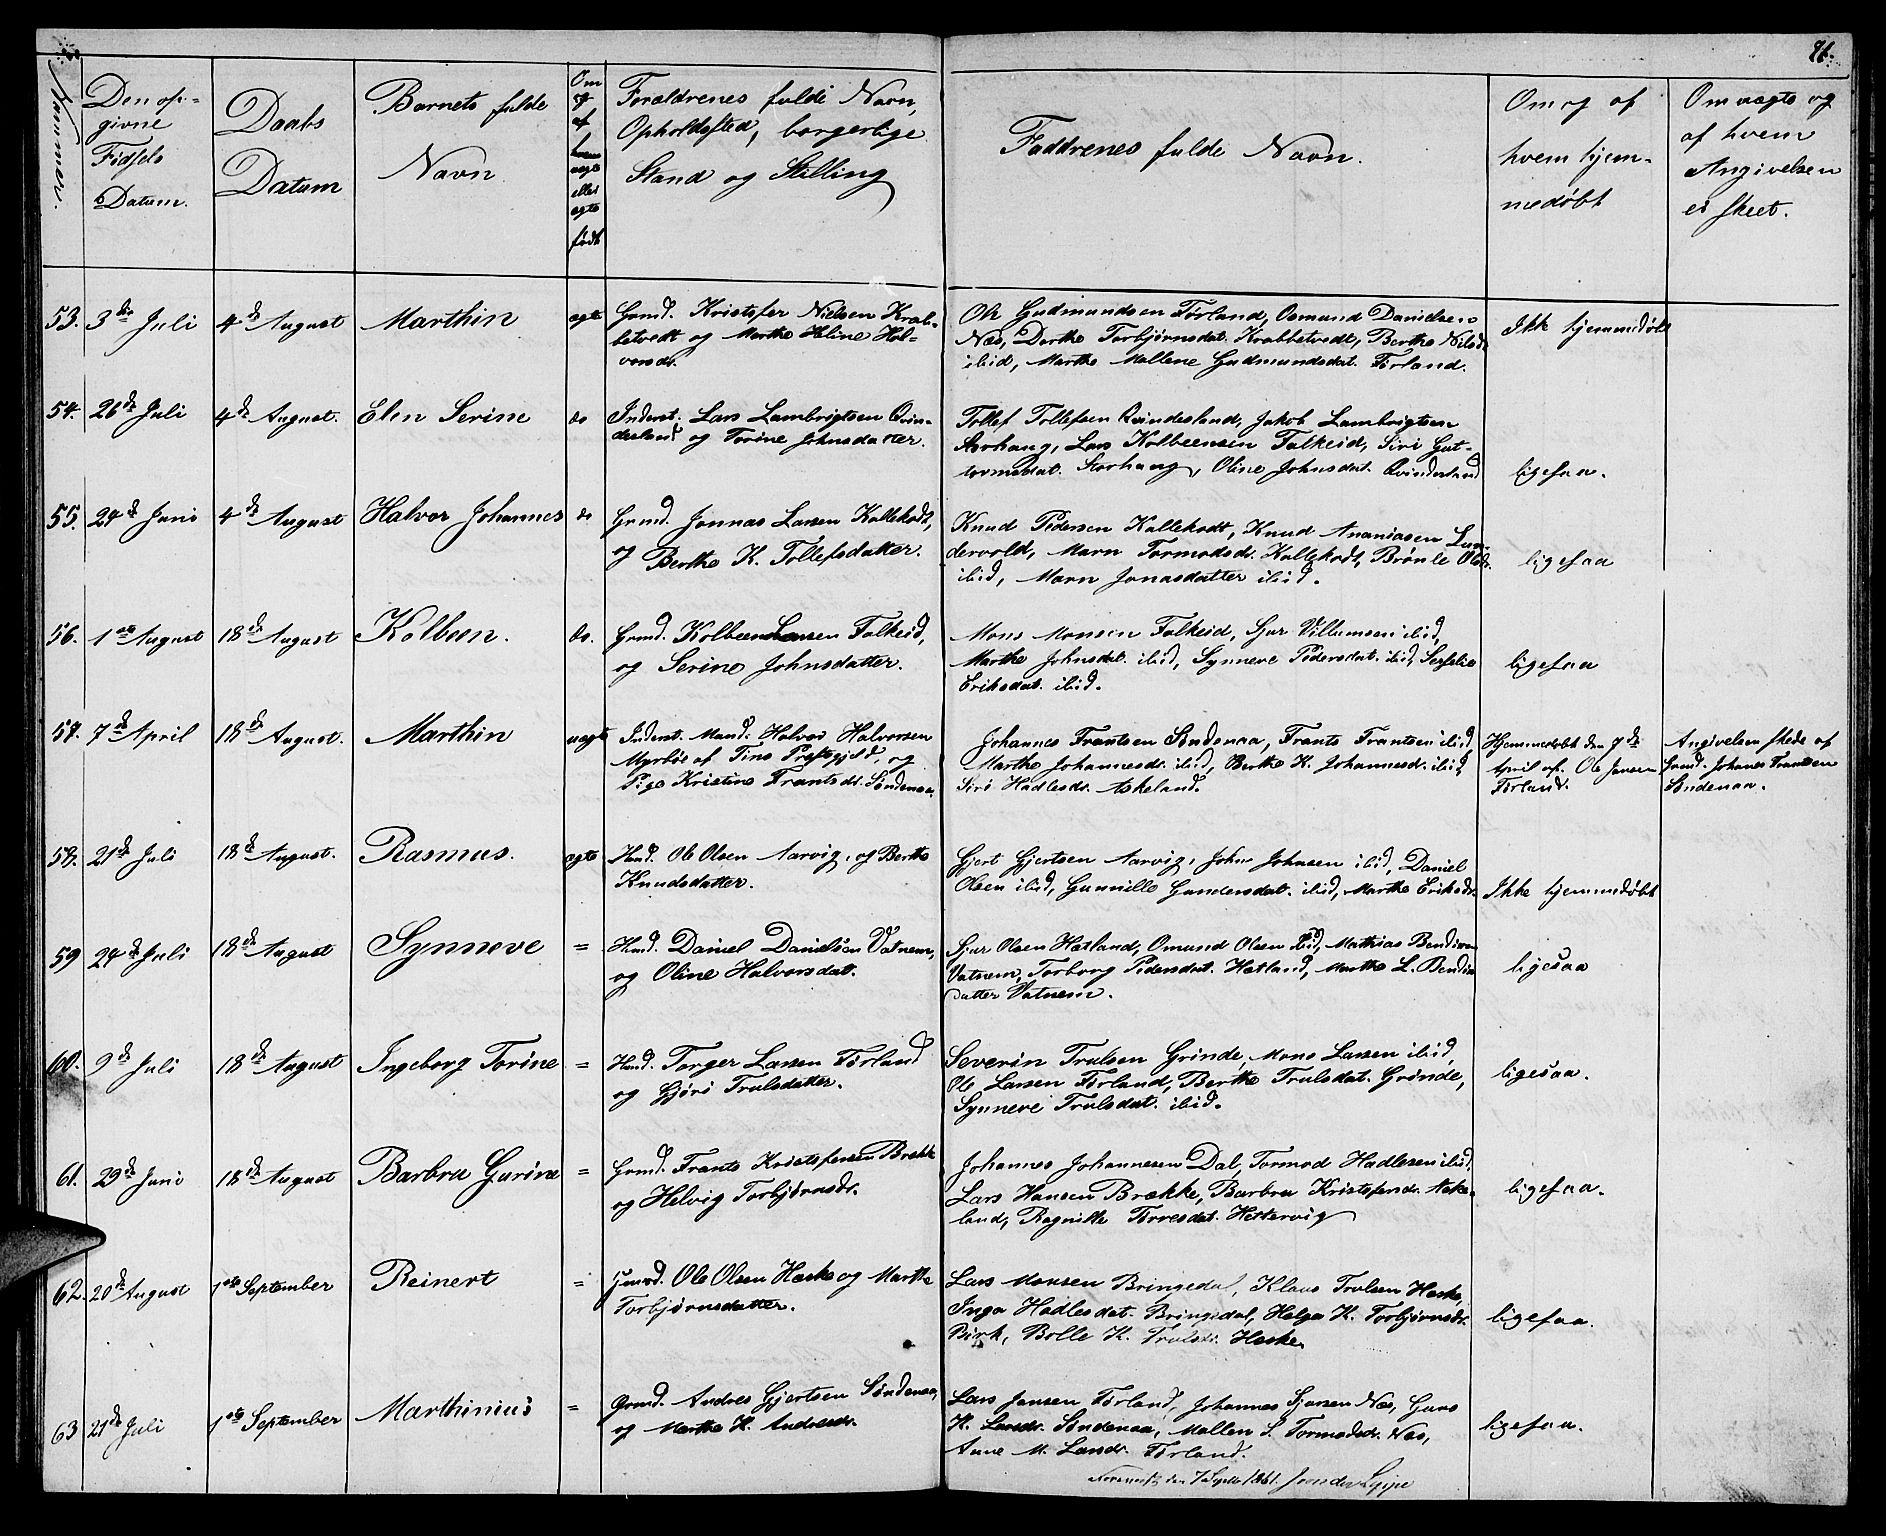 91.
Nummer.
Den op-
givne
Fødsels
Datum.
Daabs
Datum
Barnets fulde
Navn
Om
og
af
hvem
ægte
eller
uægte
født
Forældrenes fulde Navn,
Opholdssted, borgerlige
Stand og Stilling
Faddrenes fulde Navn.
Om og af
hvem hjem-
medøbt
Om vægts og
af hvem
Angivelsen
er skeet.
53. 3die Juli 4de August Marthin ægte Grmd. Kristofer Nielsen Krab-
betvedt og Marthe Heline Hal-
vorsdr.
Ole Gudmundsen Førland, Osmund Danielsen
Næs, Dorthe Torbjørnsdat. Krabbetvedt, Berthe Nilsdr.
ibid, Marthe Mallene Gudmundsdat. Førland.
Ikke hjemmedøbt
54. 26de Juli 4de August. Elen Serine do Inderst. Lars Lambrigtsen Qvin-
desland og Torine Johnsdatter.
Tollef Tollefsen Qvindesland, Jakob Lambrigtsen
Storhaug, Lars Kolbeensen Falkeid, Siri Gut-
tormsdat. Storhaug, Oline Johnsdat. Qvindesland
ligesaa.
55. 24de Juni 4de August Halvor Johannes do Grmd. Jonnas Larsen Kallekodt,
og Berthe K. Tollefsdatter.
Knud Pedersen Kallekodt, Knud Ananiasen Lun-
dervold, Marn Tormodsdr. Kallekodt, Brønle Olsdr.
ibid, Marn Jonasdatter ibid.
ligesaa
56. 1ste August 18de August Kolbeen. do. Grmd. Kolbeen Larsen Falkeid,
og Serine Johnsdatter.
Mons Monsen Falkeid, Sjur Villumsen ibid,
Marthe Johnsdat. ibid, Synneve Pedersdat. ibid,
Eriksdat. ibid.
ligesaa
57. 7de April 18de August. Marthin uægte Inderst. Mand. Halvor Halvorsen
Myrbøe af Tins Prestgjeld, og
Pige Kristine Frantsdr. Søndenaa.
Johannes Frantsen Søndenaa, Frants Frantsen ibid,
Marthe Johannesdr. ibid, Berthe K. Johannesdr. ibid,
Siri Hadlesdr. Askeland.
Hjemmedøbt den 7de
April af. Ole Jansen
Førland.
Angivelsen skede af
Grmd. Johanes Frantsen
Søndenaa.
58. 21de Juli 18de August. Rasmus. ægte Hmd. Ole Olsen Aarvig, og Berthe
Knudsdatter.
Gjert Gjertsen Aarvig, John Johnsen ibid, Daniel
Olsen ibid, Gunnille Gundersdat. ibid, Marthe Eriksdr.
Ikke hjemmedøbt
59 24de Juli 18de August Synneve = Hmd. Daniel Danielsen Vatnem,
og Oline Halvorsdat.
Sjur Olsen Hetland, Omund Olsen ibid, Mathias Bendixen
Vatnem, Torborg Pedersdat. Hetland, Marthe L. Bendix-
datter Vatnem.
ligesaa
60. 9de Juli 18de August Ingeborg Torine = Hmd. Torger Larsen Førland
og Gjøri Trulsdatter.
Severin Trulsen Grinde, Mons Larsen ibid,
Ole Larsen Førland, Berthe Trulsdat. Grinde,
Synneve Trulsdat. ibid.
ligesaa.
61. 29de Juni 18de August Barbra Gurine = Grmd. Frants Kristofersen Brekke
og Helvig Torbjørnsdr.
Johannes Johannesen Dal, Tormod Hadlesen ibid,
Lars Hansen Brække, Barbra Kristofersdr. Aske-
land, Ragnille Torresdat. Hettervig
ligesaa.
62. 20de August 1ste September Reinert = Grmd. Ole Olsen Heske og Marthe
Torbjørnsdatter.
Lars Monsen Bringedal, Klaus Trulsen Heske,
Inga Hadlesdat. Bringedal, Helga K. Torbjørnsdr.
Birk, Bolle K. Trulsdr. Heske.
ligesaa.
63 21de Juli 1ste September Marthinius = Grmd. Andres Gjertsen Søndenaa,
og Marthe K. Andresdr.
Lars Jansen Førland, Johannes Sjursen Næs, Guro
K. Larsdr. Søndenaa, Mallen S. Tormodsdr. Næs,
Anne M. Larsdr. Førland.
ligesaa.
den 7 1861.